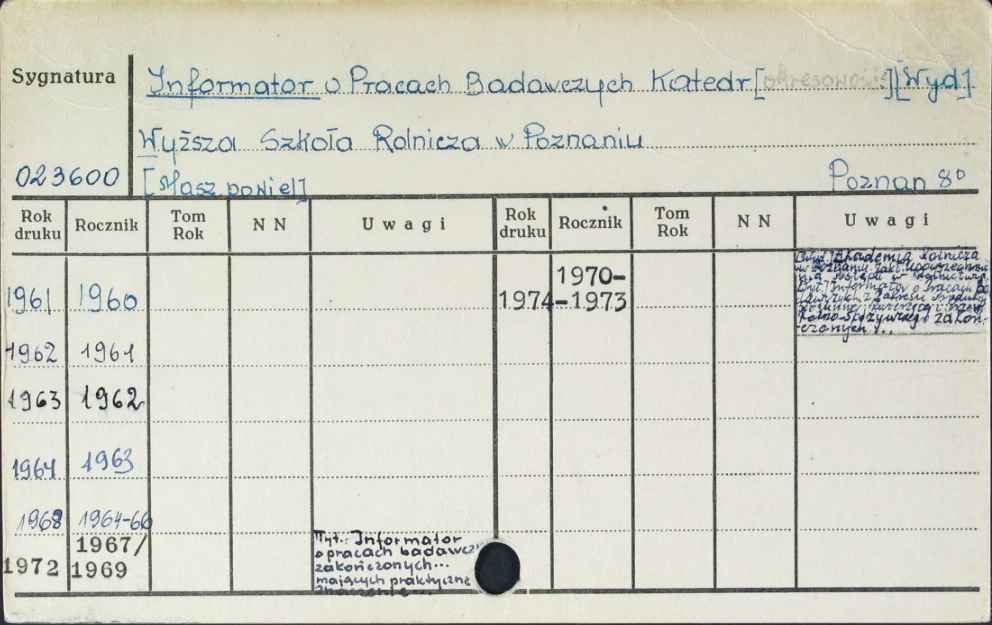 Sygnatura
Informator o Pracach Badawczych Katedr [Wyd].
Wyższa Szkoła Rolnicza w Poznaniu
023600
[Masz powiel]
Poznań 8°
Rok druku Rocznik Tom Rok N N Uwagi Rok druku Rocznik Tom Rok N N Uwagi
1961 1960
1974 1970-1973
Akademia Rolnicza
w Poznaniu
Tyt. Informator o Pracach
Rolno-Spożywczego zakoń-
czonych...
1962 1961
1963 1962
1964 1963
1968 1964-66
1972 1967/1969
Tyt.: Informator
o pracach badawcz
zakończonych...
mających praktyczne
znaczenie...